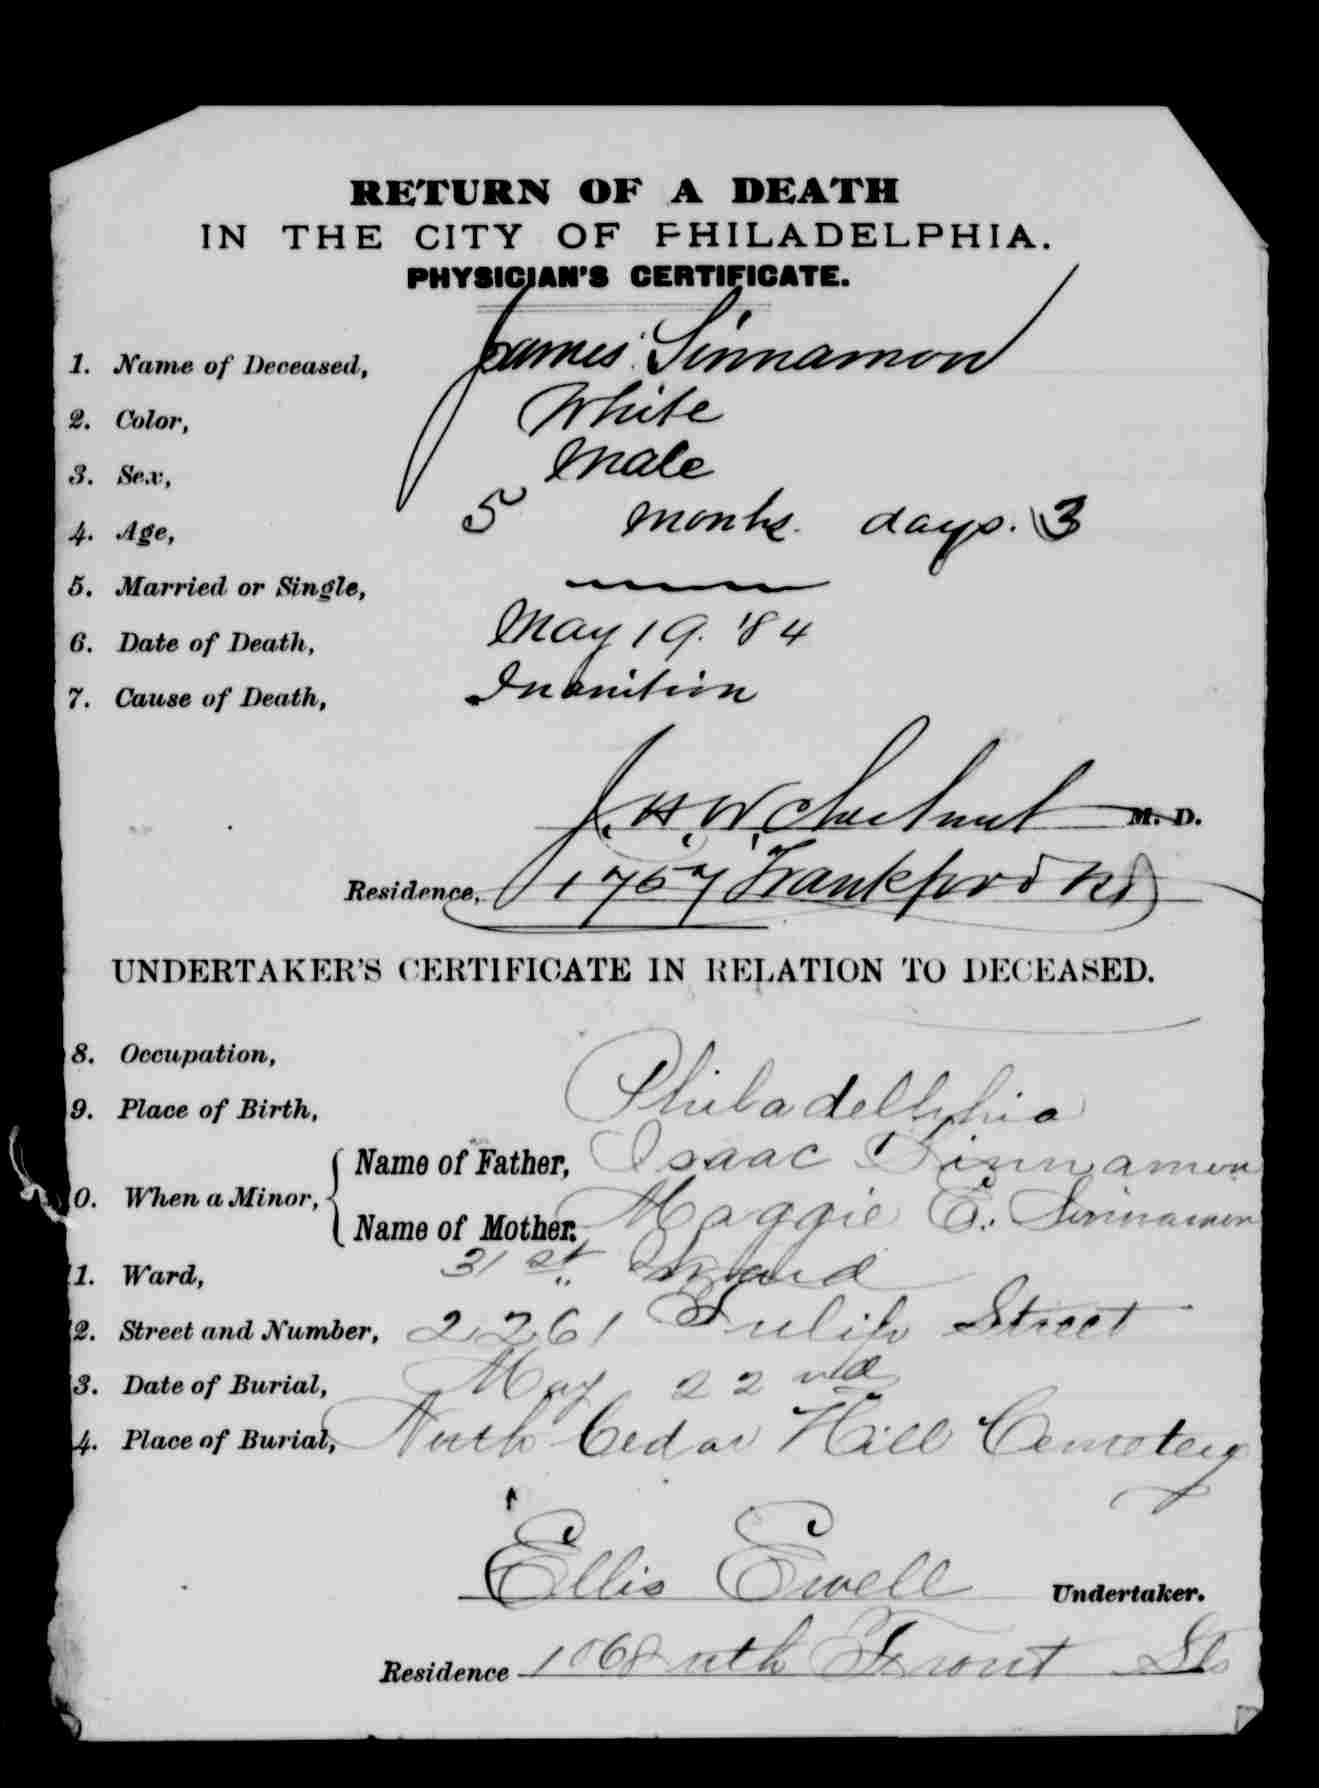 RETURN OF A DEATH
IN THE CITY OF PHILADELPHIA.
PHYSICIAN'S CERTIFICATE.
1. Name of Deceased, James Sinnamon
2. Color, White
3. Sex, Male
4. Age, 5 months. days. 3
5. Married or Single,
6. Date of Death, May 19. '84
7. Cause of Death, Inanition
J. H. W. Chestnut M. D.
Residence, 1757 Frankford Rd
UNDERTAKER'S CERTIFICATE IN RELATION TO DECEASED.
8. Occupation,
9. Place of Birth, Philadellphia
Name of Father, Isaac Sinnamon
0. When a Minor,
Name of Mother. Maggie E. Sinnamon
1. Ward, 31st Ward
2. Street and Number, 2261 Tulip Street
3. Date of Burial, May 22nd
4. Place of Burial, North Cedar Hill Cemetery
Ellis Ewell Undertaker.
Residence 1068 nth Front St